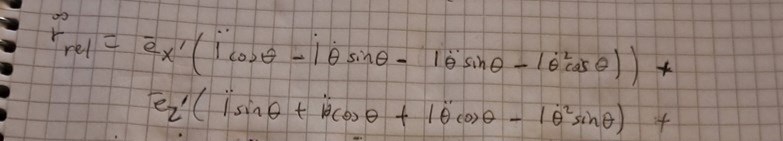 r̊̊_rel = ē_x'( l̈ cosθ - l̇ θ̇ sinθ - l θ̈ sinθ - l θ̇² cos θ)) +
ē_z'( l̈ sinθ + cosθ + l θ̈ cosθ - l θ̇² sinθ) +